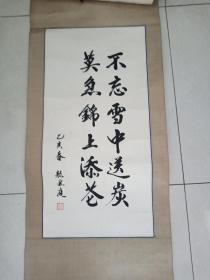 不忘雪中送炭
莫忘錦上添花
乙亥春